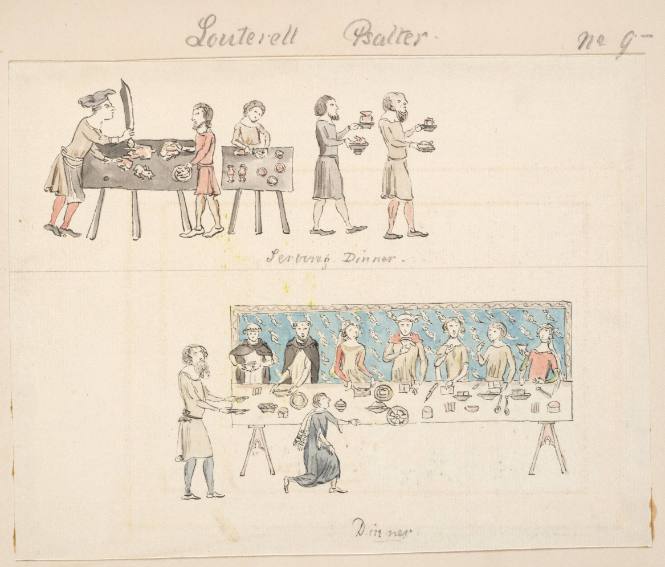 Louterell Psalter.
No 9
Serving Dinner.
Dinner.